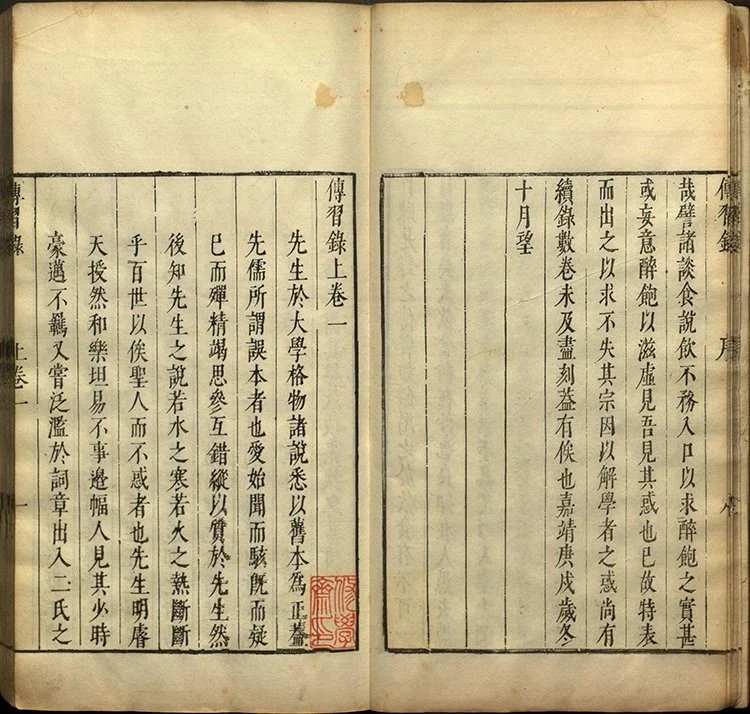 傳習錄
序
哉譬諸談食說飲不務入口以求醉飽之實甚
或妄意醉飽以滋虛見吾見其惑也已故特表
而出之以求不失其宗因以解學者之惑尚有
續錄數卷未及盡刻葢有俟也嘉靖庚戌歲冬
十月望
傳習錄上卷一
先生於大學格物諸說悉以舊本為正葢
先儒所謂誤本者也愛始聞而駭旣而疑
已而殫精竭思參互錯縱以質於先生然
後知先生之說若水之寒若火之熱斷斷
乎百世以俟聖人而不惑者也先生明睿
天授然和樂坦易不事邉幅人見其少時
豪邁不羈又嘗泛濫於詞章出入二氏之
傳習錄
上卷一
一